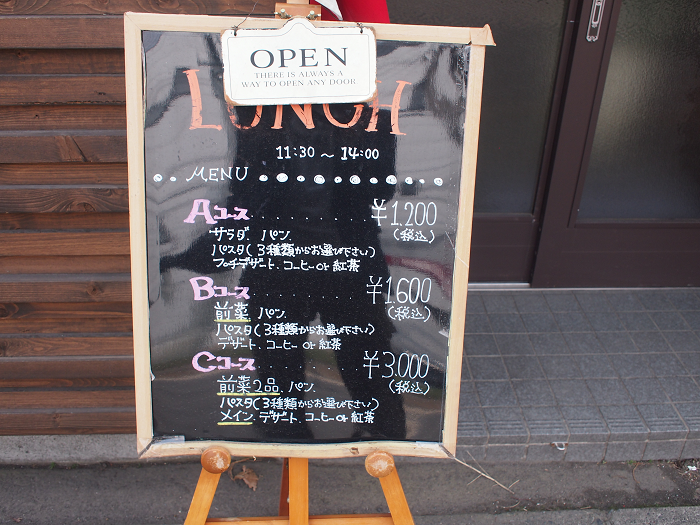 OPEN
THERE IS ALWAYS A
WAY TO OPEN ANY DOOR
LUNCH
11:30 ～ 14:00
MENU
Aコース.......... ¥1,200
サラダ、パン、 (税込)
パスタ(3種類からお選び下さい)
プチデザート、コーヒー or 紅茶
Bコース.......... ¥1,600
前菜、パン、 (税込)
パスタ(3種類からお選び下さい)
デザート、コーヒー or 紅茶
Cコース.......... ¥3,000
前菜2品、パン、 (税込)
パスタ(3種類からお選び下さい)
メイン、デザート、コーヒー or 紅茶